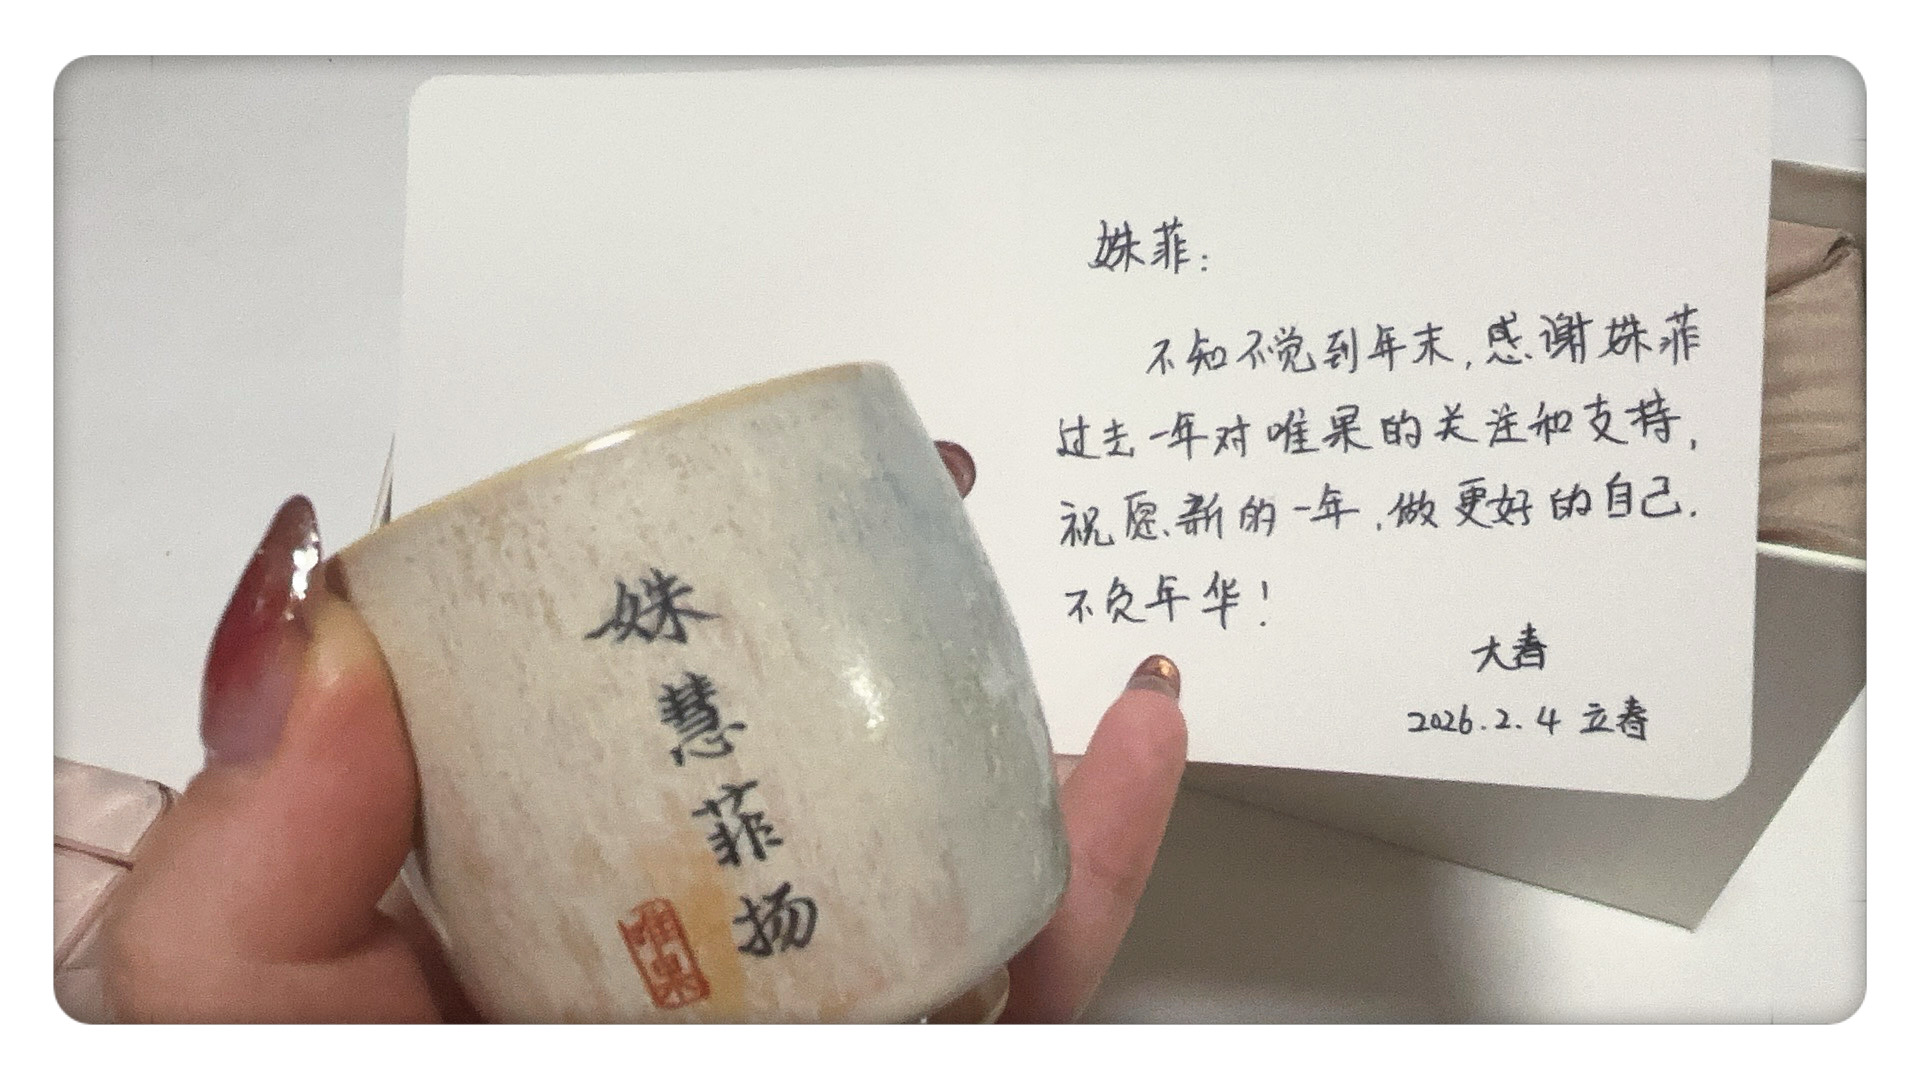 姝菲：
不知不觉到年末，感谢姝菲
过去一年对唯果的关注和支持，
祝愿新的一年，做更好的自己.
不负年华！
大春
2026.2.4 立春
姝慧菲扬
唯果